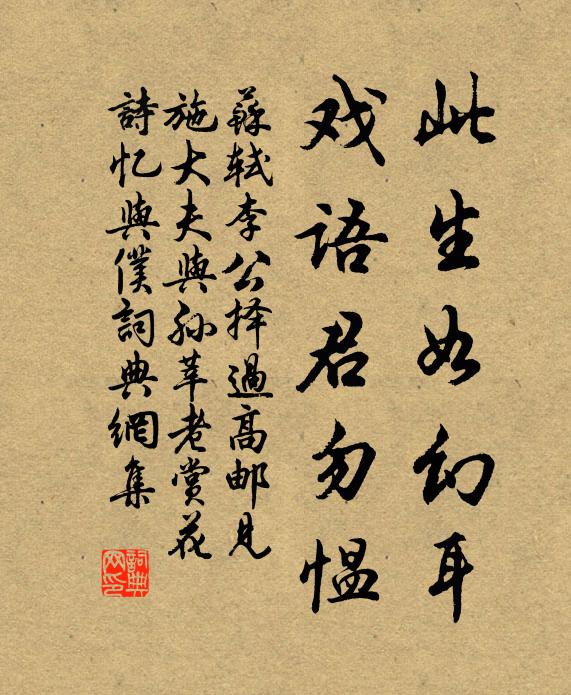 此生如幻耳
戏语君勿愠
蘇轼李公择過高邮見
施大夫與孙莘老赏花
詩忆與僕詞典網集
詞典网印